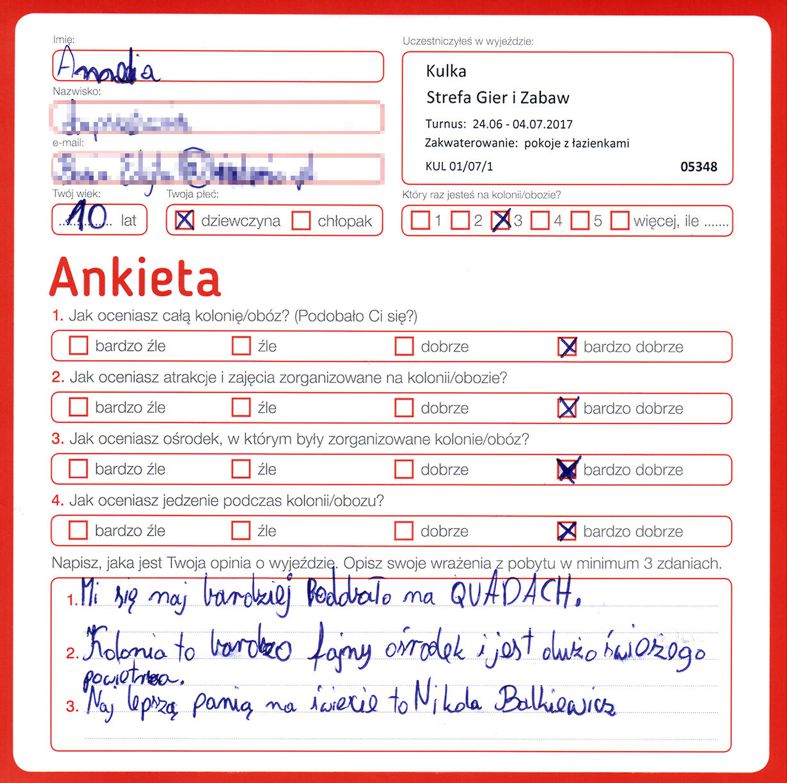 Imię:
Uczestniczyłeś w wyjeździe:
Amelia
Kulka
Strefa Gier i Zabaw
Turnus: 24.06 - 04.07.2017
Zakwaterowanie: pokoje z łazienkami
KUL 01/07/1 05348
Nazwisko:
e-mail:
Twój wiek: Twoja płeć:
Który raz jesteś na kolonii/obozie?
10 lat dziewczyna chłopak
1 2 3 4 5 więcej, ile .......
Ankieta
1. Jak oceniasz całą kolonię/obóz? (Podobało Ci się?)
bardzo źle źle dobrze bardzo dobrze
2. Jak oceniasz atrakcje i zajęcia zorganizowane na kolonii/obozie?
bardzo źle źle dobrze bardzo dobrze
3. Jak oceniasz ośrodek, w którym były zorganizowane kolonie/obóz?
bardzo źle źle dobrze bardzo dobrze
4. Jak oceniasz jedzenie podczas kolonii/obozu?
bardzo źle źle dobrze bardzo dobrze
Napisz, jaka jest Twoja opinia o wyjeździe. Opisz swoje wrażenia z pobytu w minimum 3 zdaniach.
1. Mi się naj bardziej na QUADACH.
2. Kolonia to bardzo fajny ośrodek i jest dużo świerzego
powietrza.
3. Naj lepszą panią na świecie to Nikola Balkiewicz